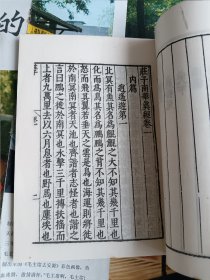 的
莊子南華真經卷一
内篇
逍遙遊第一
北冥有魚其名爲鯤鯤之大不知其幾千里也
化而爲鳥其名爲鵬鵬之背不知其幾千里也
怒而飛其翼若垂天之雲是鳥也海運則將徙
於南冥南冥者天池也齊諧者志怪者也諧之
言曰鵬之徙於南冥也水擊三千里搏扶搖而
上者九萬里去以六月息者也野馬也塵埃也
《毛主席去安源》